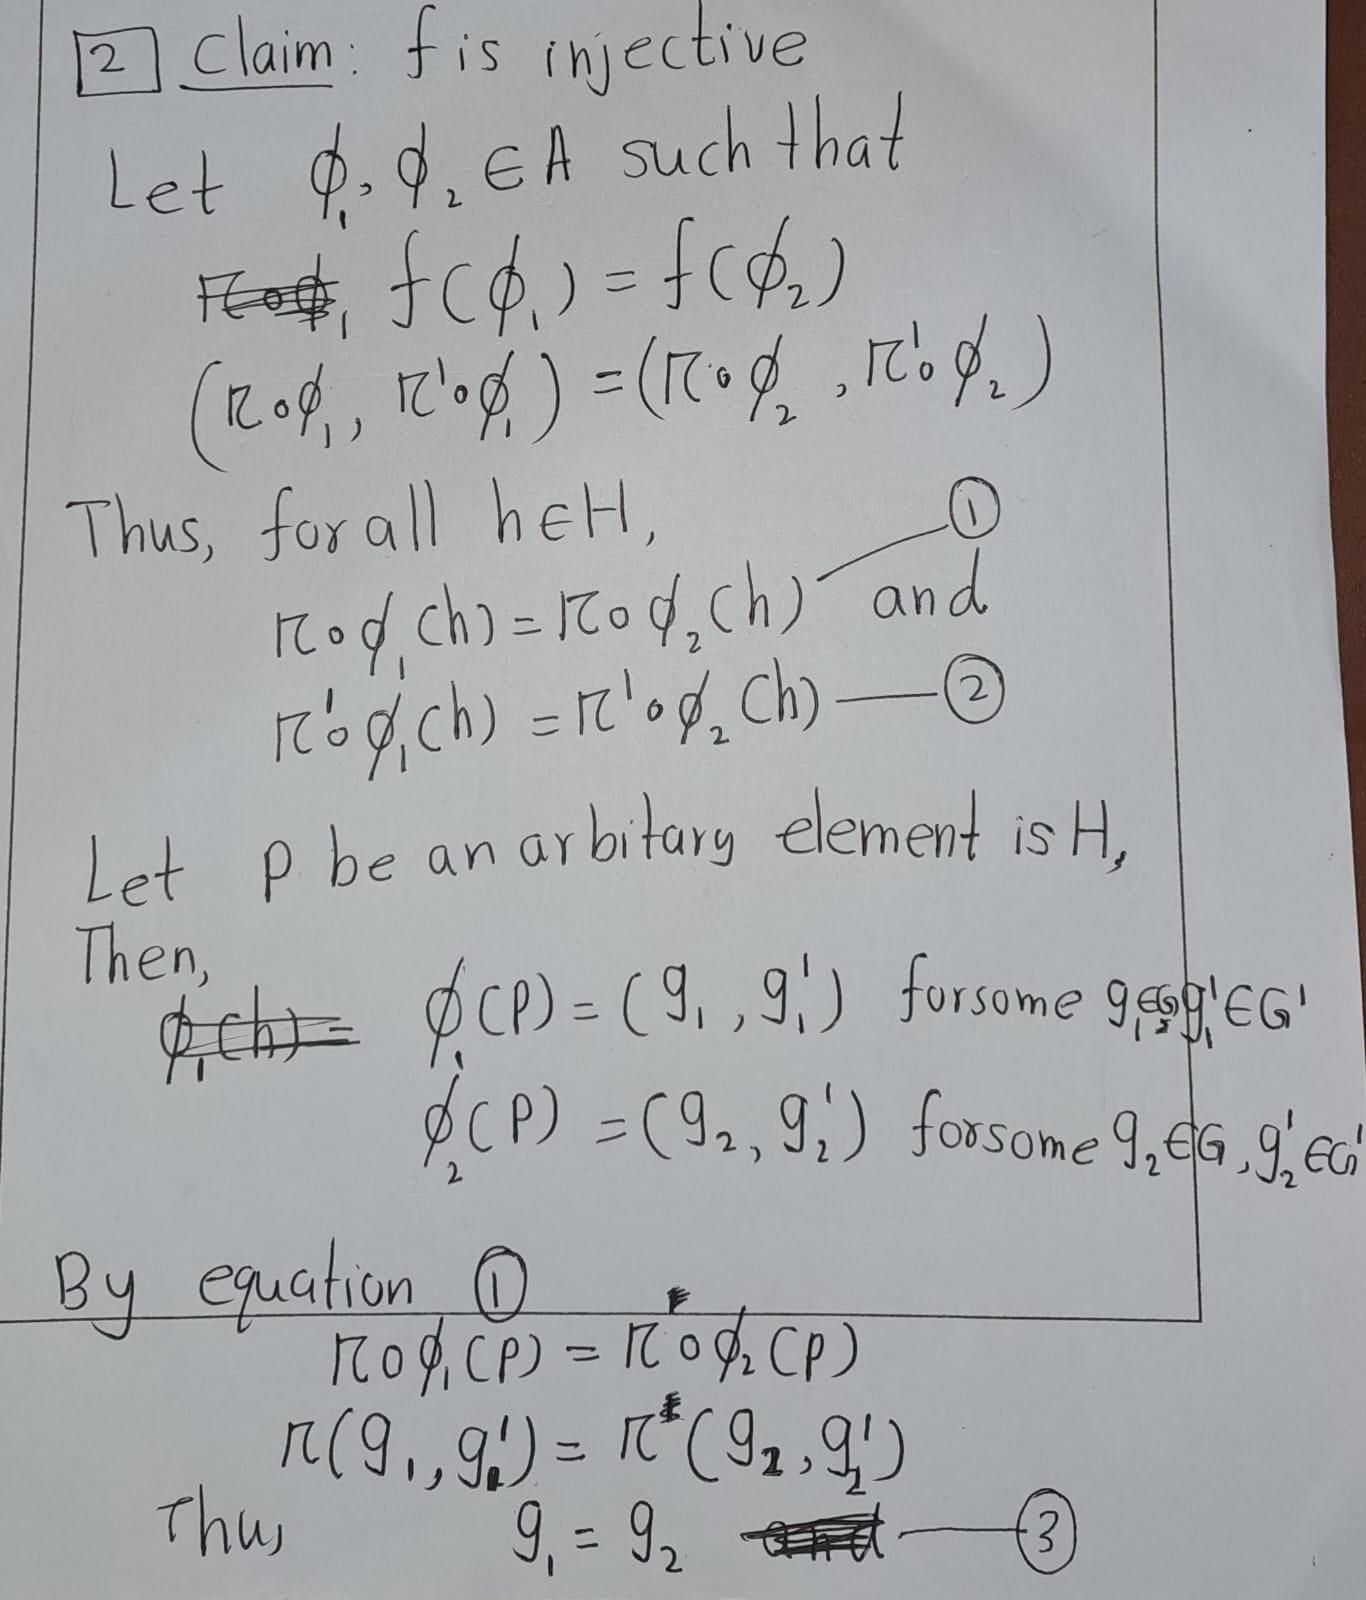 [2] Claim: f is injective
Let ϕ₁, ϕ₂ ∈ A such that
f(ϕ₁) = f(ϕ₂)
(π∘ϕ₁, π'∘ϕ₁) = (π∘ϕ₂, π'∘ϕ₂)
Thus, for all h∈H, ①
π∘ϕ₁(h) = π∘ϕ₂(h) and
π'∘ϕ₁(h) = π'∘ϕ₂(h) — ②
Let p be an arbitary element is H,
Then,
ϕ₁(p) = (g₁, g₁') forsome g₁∈G, g₁'∈G'
ϕ₂(p) = (g₂, g₂') forsome g₂∈G, g₂'∈G'
By equation ①
π∘ϕ₁(p) = π∘ϕ₂(p)
π(g₁, g₁') = π(g₂, g₂')
Thus g₁ = g₂ — ③